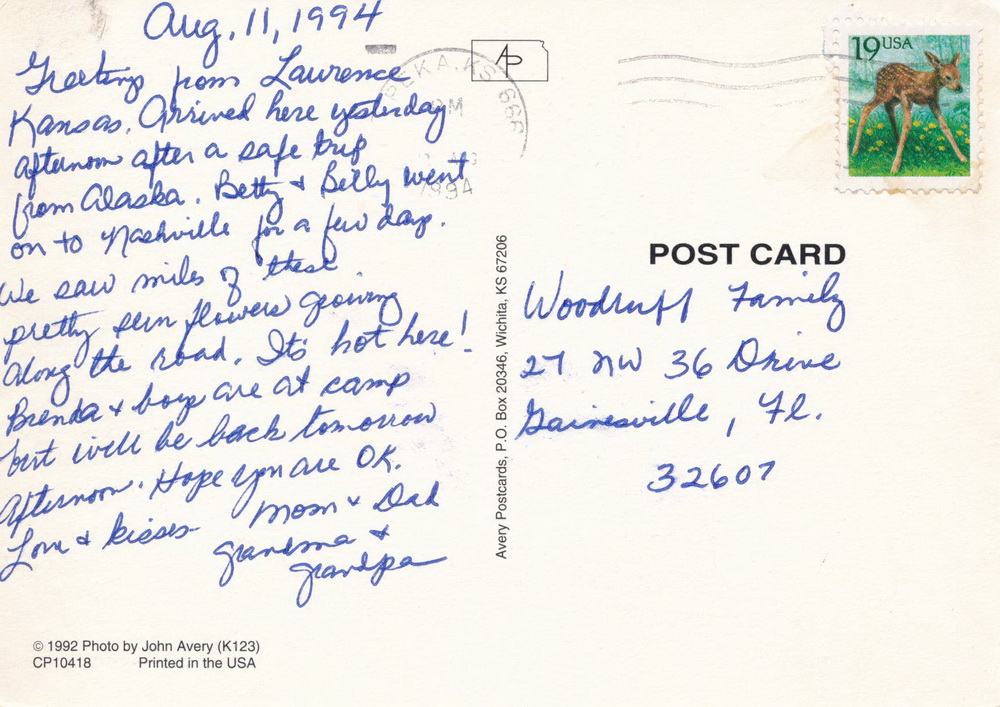 Aug. 11, 1994
Greetings from Lawrence
Kansas. Arrived here yesterday
afternoon after a safe trip
from Alaska. Betty & Billy went
on to Nashville for a few days.
We saw miles of these
pretty sun flowers growing
along the road. It's hot here!
Brenda & boys are at camp
but will be back tomorrow
afternoon. Hope you are OK.
Love & kisses
Mom & Dad
Grandma &
Grandpa
© 1992 Photo by John Avery (K123)
CP10418 Printed in the USA
Avery Postcards, P.O. Box 20346, Wichita, KS 67206
AP
KA, KS 666
1994
19 USA
POST CARD
Woodruff Family
27 NW 36 Drive
Gainesville, Fl.
32607